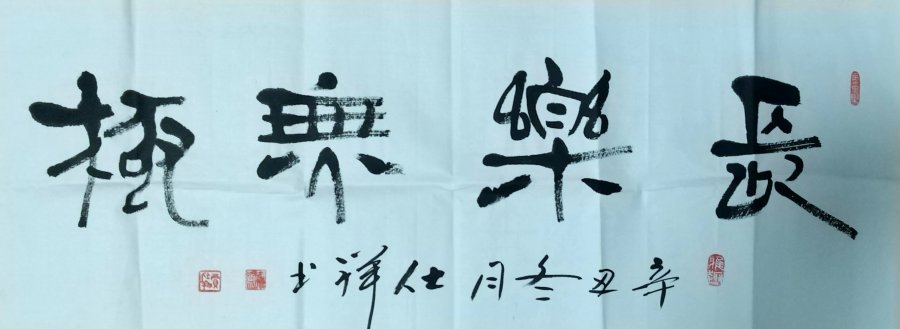 長樂無極
辛丑冬月仕祥书